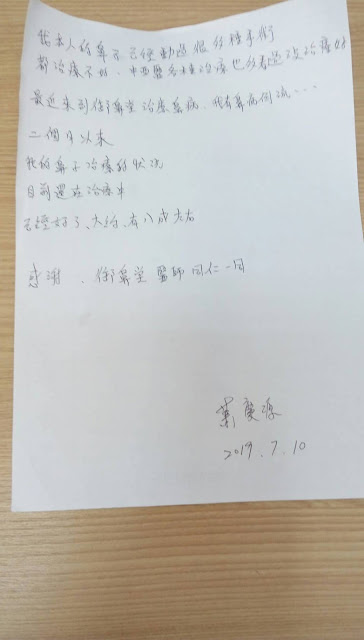 我本人的鼻子已經動過很多種手術
都治療不好、中西醫各種治療也都還沒治療好
最近來到御鼻堂治療鼻病、我有鼻病倒流...
二個月以來
我的鼻子治療的狀況
目前還在治療中
已經好了、大約、有八成左右
感謝、御鼻堂 醫師 同仁一同
慶源
2019.7.10